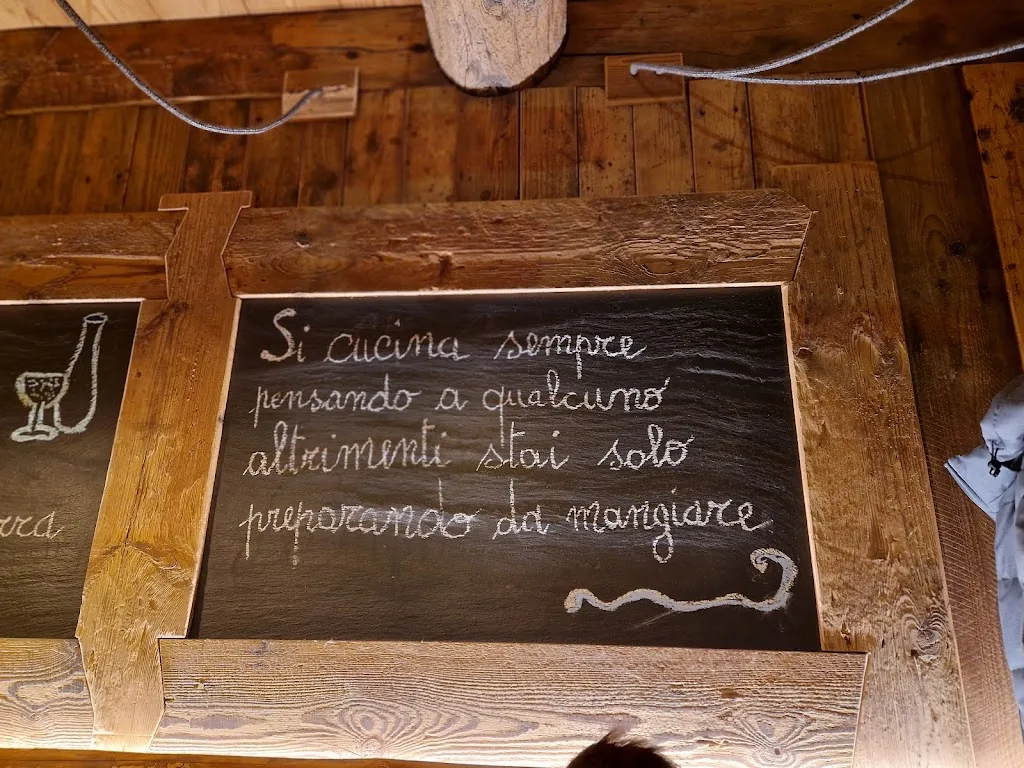 Si cucina sempre
pensando a qualcuno
altrimenti stai solo
preparando da mangiare